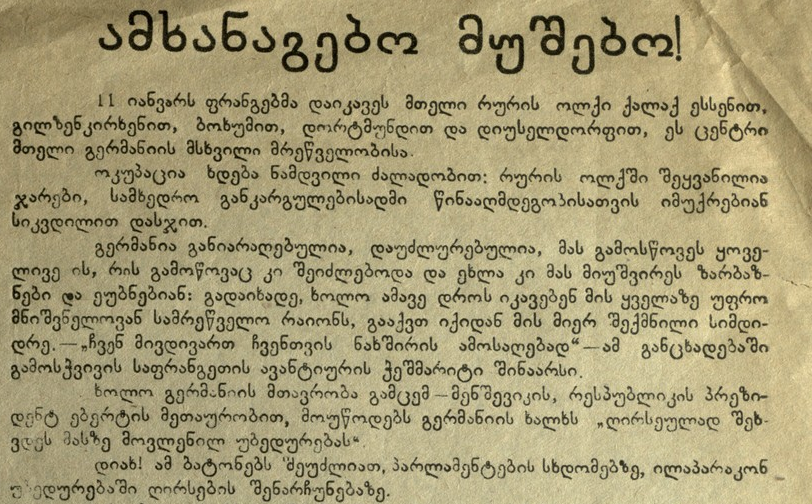 ამხანაგებო მუშებო!
11 იანვარს ფრანგებმა დაიკავეს მთელი რურის ოლქი ქალაქ ესსენით,
გილზენკირხენით, ბოხუმით, დორტმუნდით და დიუსელდორფით, ეს ცენტრი
მთელი გერმანიის მსხვილი მრეწველობისა.
ოკუპაცია ხდება ნამდვილი ძალადობით: რურის ოლქში შეყვანილია
ჯარები, სამხედრო განკარგულებისადმი წინააღმდეგობისათვის იმუქრებიან
სიკვდილით დასჯით.
გერმანია განიარაღებულია, დაუძლურებულია, მას გამოსწოვეს ყოვე-
ლივე ის, რის გამოწოვაც კი შეიძლებოდა და ეხლა კი მას მიუშვირეს ზარბაზ-
ნები და ეუბნებიან: გადაიხადე, ხოლო ამავე დროს იკავებენ მის ყველაზე უფრო
მნიშვნელოვან სამრეწველო რაიონს, გააქვთ იქიდან მის მიერ შექმნილი სიმდი-
დრე.—„ჩვენ მივდივართ ჩვენთვის ნახშირის ამოსაღებად“—ამ განცხადებაში
გამოსჭვივის საფრანგეთის ავანტიურის ჭეშმარიტი შინაარსი.
ხოლო გერმანიის მთავრობა გამცემ—მენშევიკის, რესპუბლიკის პრეზი-
დენტ ებერტის მეთაურობით, მოუწოდებს გერმანიის ხალხს „ღირსეულად შეხ-
ვდეს მასზე მოვლენილ უბედურებას“.
დიახ! ამ ბატონებს შეუძლიათ, პარლამენტების სხდომებზე, ილაპარაკონ
უბედურებაში ღირსების შენარჩუნებაზე.